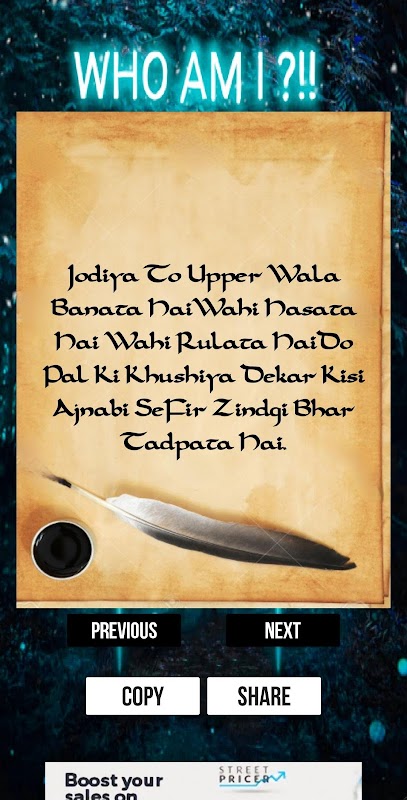 WHO AM I ?!!
Jodiya To Upper Wala
Banata HaiWahi Hasata
Hai Wahi Rulata HaiDo
Pal Ki Khushiya Dekar Kisi
Ajnabi SeFir Zindgi Bhar
Tadpata Hai.
PREVIOUS
NEXT
COPY
SHARE
Boost your
sales on
STREET
PRICER